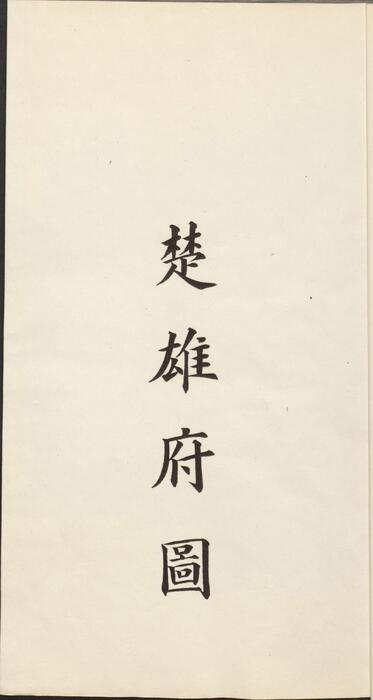 楚雄府圖